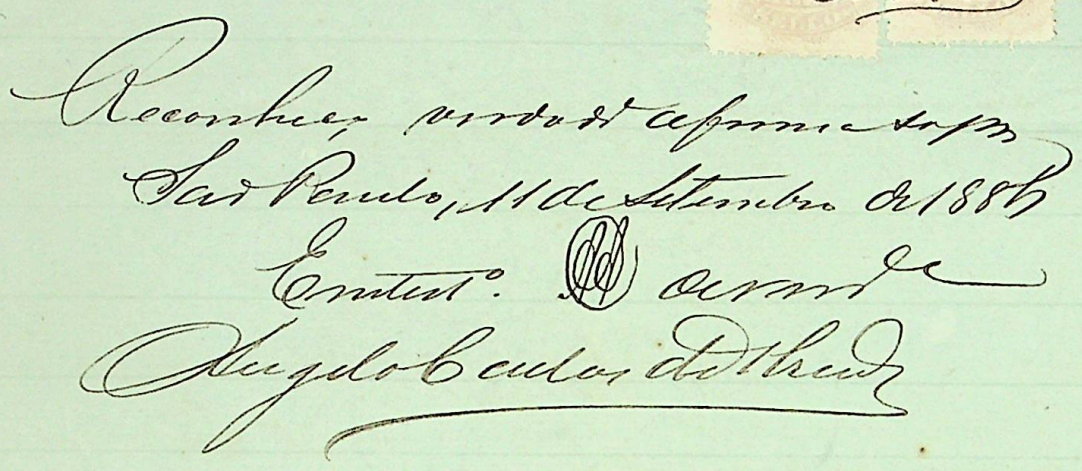 Reconheço verdadª a firma supra
São Paulo, 11 de Setembro de 1886
Em testº. da verdade
Angelo Carlos de Abreu